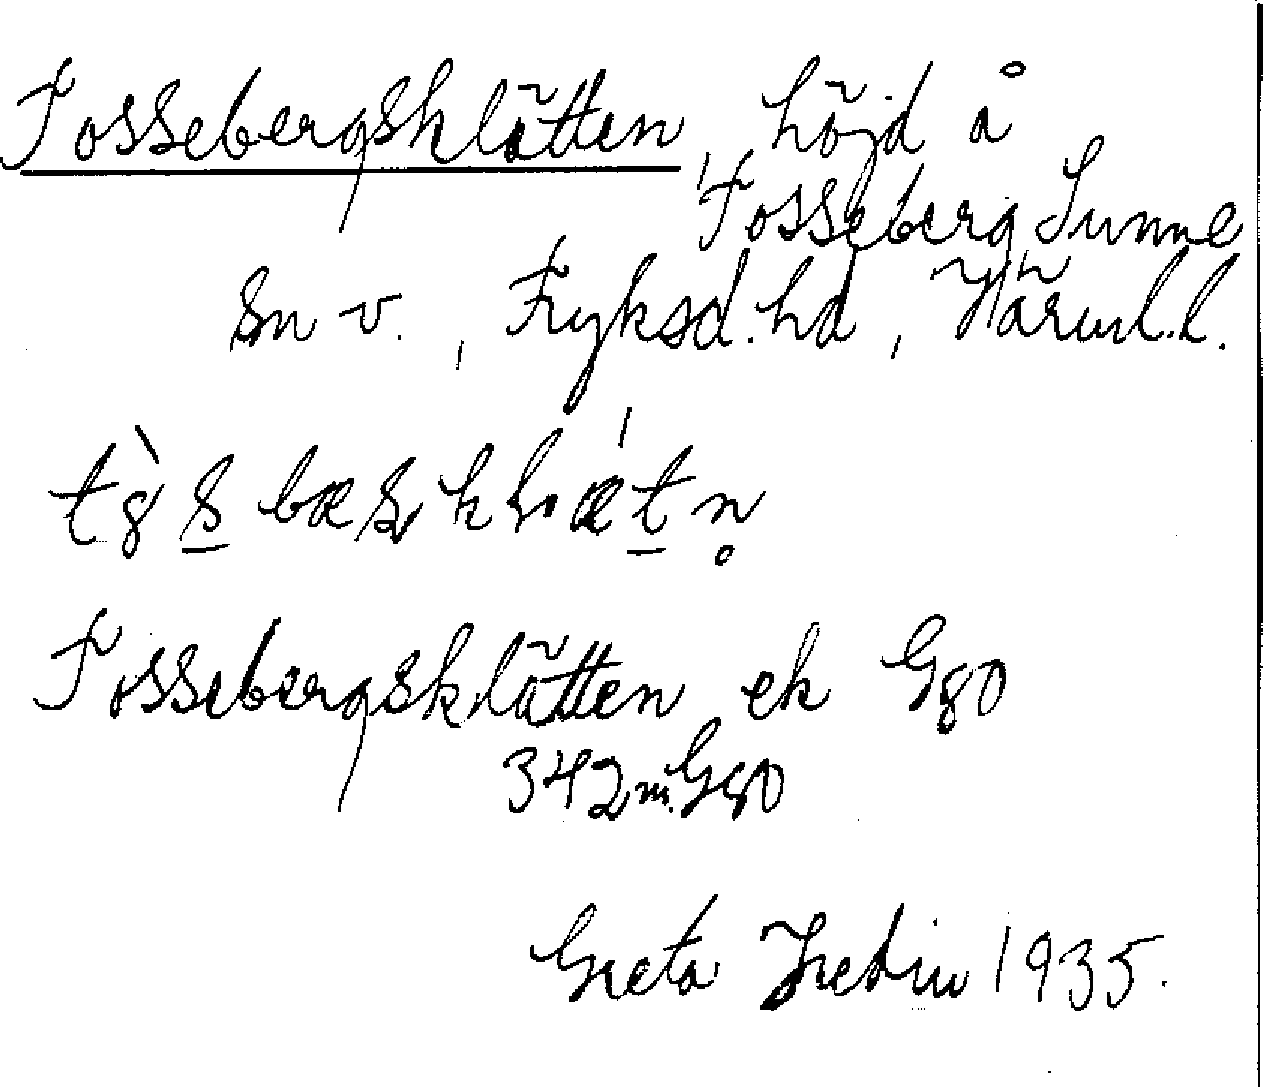 Tossebergsklätten, höjd å
Tosseberg, Sunne
sn v., Fryksd. hd, Värml. l.
Tossebergsklätten ek Ggo
342 m. Ggo
Greta Hedin 1935.